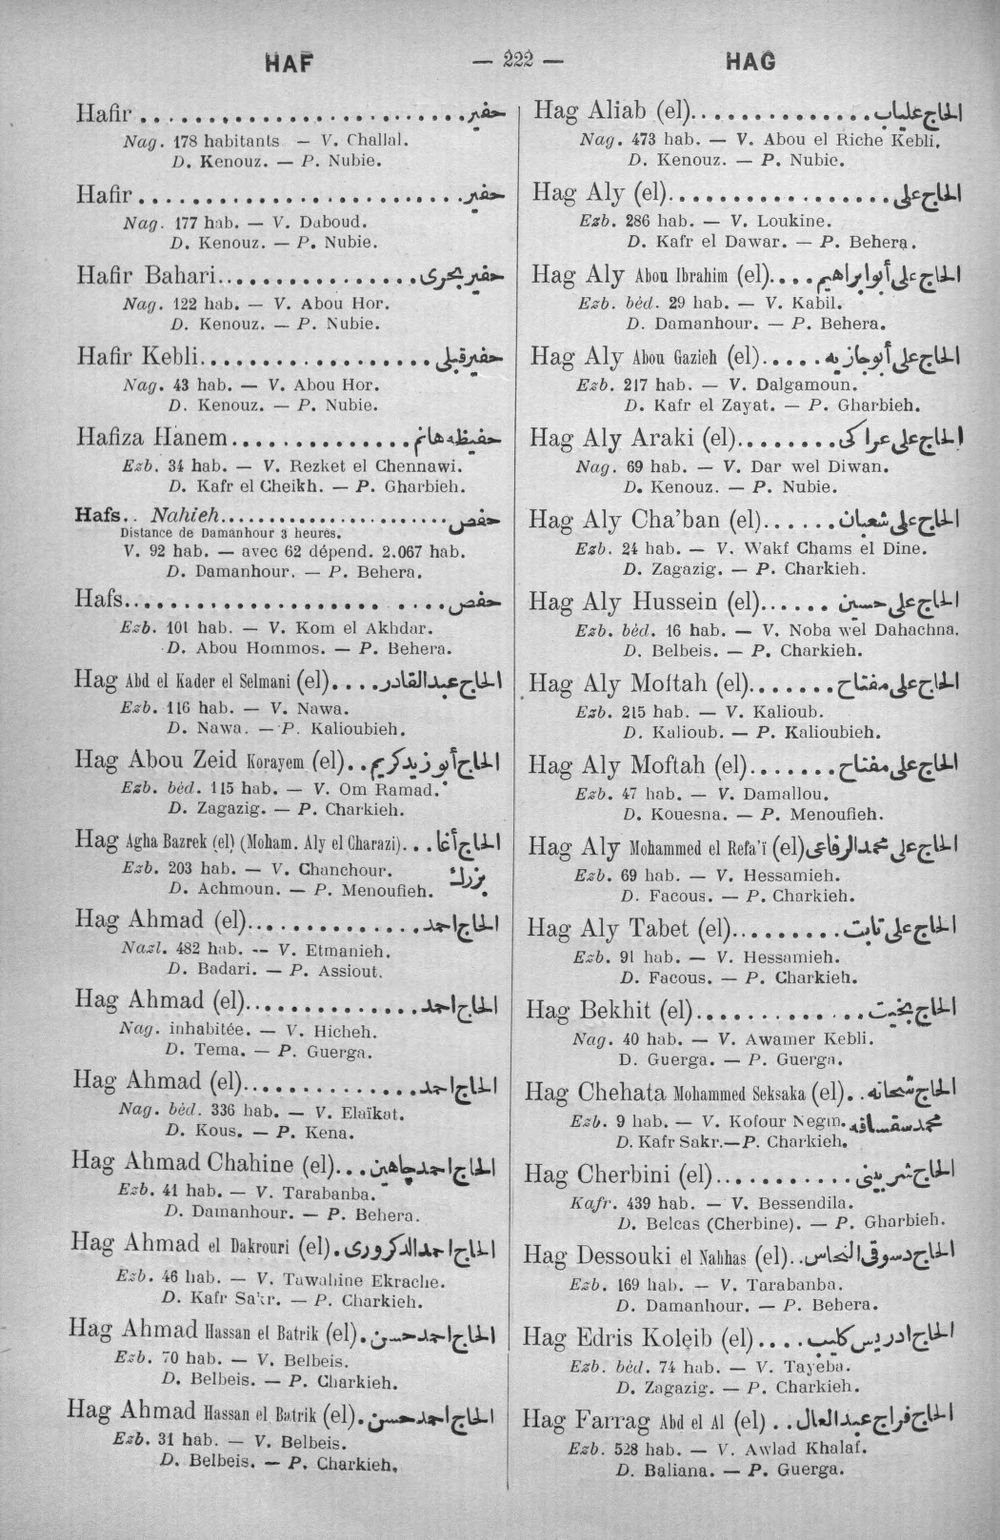 HAF
— 222 —
HAG
Hafir . . . . . . . . . . حفير
Nag. 178 habitants — V. Challal.
D. Kenouz. — P. Nubie.
Hafir . . . . . . . . . . حفير
Nag. 177 hab. — V. Daboud.
D. Kenouz. — P. Nubie.
Hafir Bahari . . . . . . . . . . حفير بحرى
Nag. 122 hab. — V. Abou Hor.
D. Kenouz. — P. Nubie.
Hafir Kebli . . . . . . . . . . حفير قبلى
Nag. 43 hab. — V. Abou Hor.
D. Kenouz. — P. Nubie.
Hafiza Hanem . . . . . . . . . . حفيظه هانم
Ezb. 34 hab. — V. Rezket el Chennawi.
D. Kafr el Cheikh. — P. Gharbieh.
Hafs . . Nahieh . . . . . . . . . . حفص
Distance de Damanhour 3 heures.
V. 92 hab. — avec 62 dépend. 2.067 hab.
D. Damanhour. — P. Behera.
Hafs . . . . . . . . . . حفص
Ezb. 101 hab. — V. Kom el Akhdar.
D. Abou Hommos. — P. Behera.
Hag Abd el Kader el Selmani (el) . . . . الحاج عبد القادر
Ezb. 116 hab. — V. Nawa.
D. Nawa. — P. Kalioubieh.
Hag Abou Zeid Korayem (el) . . الحاج أبو زيد كريم
Ezb. béd. 115 hab. — V. Om Ramad.
D. Zagazig. — P. Charkieh.
Hag Agha Bazrek (el) (Moham. Aly el Charazi) . . . الحاج أغا
Ezb. 203 hab. — V. Chanchour. بزرك
D. Achmoun. — P. Menoufieh.
Hag Ahmad (el) . . . . . . . . . . الحاج احمد
Nazl. 482 hab. -- V. Etmanieh.
D. Badari. — P. Assiout.
Hag Ahmad (el) . . . . . . . . . . الحاج احمد
Nag. inhabitée. — V. Hicheh.
D. Tema. — P. Guerga.
Hag Ahmad (el) . . . . . . . . . . الحاج احمد
Nag. béd. 336 hab. — V. Elaïkat.
D. Kous. — P. Kena.
Hag Ahmad Chahine (el) . . . الحاج احمد چاهين
Ezb. 41 hab. — V. Tarabanba.
D. Damanhour. — P. Behera.
Hag Ahmad el Dakrouri (el) . الحاج احمد الدكرورى
Ezb. 46 hab. — V. Tawahine Ekrache.
D. Kafr Sakr. — P. Charkieh.
Hag Ahmad Hassan el Batrik (el) . الحاج احمد حسن
Ezb. 70 hab. — V. Belbeis.
D. Belbeis. — P. Charkieh.
Hag Ahmad Hassan el Batrik (el) . الحاج احمد حسن
Ezb. 31 hab. — V. Belbeis.
D. Belbeis. — P. Charkieh.
Hag Aliab (el) . . . . . . . . . . الحاج علياب
Nag. 473 hab. — V. Abou el Riche Kebli.
D. Kenouz. — P. Nubie.
Hag Aly (el) . . . . . . . . . . الحاج على
Ezb. 286 hab. — V. Loukine.
D. Kafr el Dawar. — P. Behera.
Hag Aly Abou Ibrahim (el) . . . . الحاج على أبو ابراهيم
Ezb. béd. 29 hab. — V. Kabil.
D. Damanhour. — P. Behera.
Hag Aly Abou Gazieh (el) . . . . . الحاج على أبو جازيه
Ezb. 217 hab. — V. Dalgamoun.
D. Kafr el Zayat. — P. Gharbieh.
Hag Aly Araki (el) . . . . . . . . الحاج على عراكى
Nag. 69 hab. — V. Dar wel Diwan.
D. Kenouz. — P. Nubie.
Hag Aly Cha'ban (el) . . . . . . الحاج على شعبان
Ezb. 24 hab. — V. Wakf Chams el Dine.
D. Zagazig. — P. Charkieh.
Hag Aly Hussein (el) . . . . . . الحاج على حسين
Ezb. béd. 16 hab. — V. Noba wel Dahachna.
D. Belbeis. — P. Charkieh.
Hag Aly Moftah (el) . . . . . . . الحاج على مفتاح
Ezb. 215 hab. — V. Kalioub.
D. Kalioub. — P. Kalioubieh.
Hag Aly Moftah (el) . . . . . . . الحاج على مفتاح
Ezb. 47 hab. — V. Damallou.
D. Kouesna. — P. Menoufieh.
Hag Aly Mohammed el Refa'ï (el) الحاج على محمد الرفاعى
Ezb. 69 hab. — V. Hessamieh.
D. Facous. — P. Charkieh.
Hag Aly Tabet (el) . . . . . . . . . الحاج على ثابت
Ezb. 91 hab. — V. Hessamieh.
D. Facous. — P. Charkieh.
Hag Bekhit (el) . . . . . . . . . . الحاج بخيت
Nag. 40 hab. — V. Awamer Kebli.
D. Guerga. — P. Guerga.
Hag Chehata Mohammed Seksaka (el) . . الحاج شحاته
Ezb. 9 hab. — V. Kofour Negm. محمد سقساقه
D. Kafr Sakr. — P. Charkieh.
Hag Cherbini (el) . . . . . . . . . . الحاج شربينى
Kafr. 439 hab. — V. Bessendila.
D. Belcas (Cherbine). — P. Gharbieh.
Hag Dessouki el Nahhas (el) . . الحاج دسوقى النحاس
Ezb. 169 hab. — V. Tarabanba.
D. Damanhour. — P. Behera.
Hag Edris Koleib (el) . . . . الحاج ادريس كليب
Ezb. béd. 74 hab. — V. Tayeba.
D. Zagazig. — P. Charkieh.
Hag Farrag Abd el Al (el) . . الحاج فراج عبد العال
Ezb. 528 hab. — V. Awlad Khalaf.
D. Baliana. — P. Guerga.